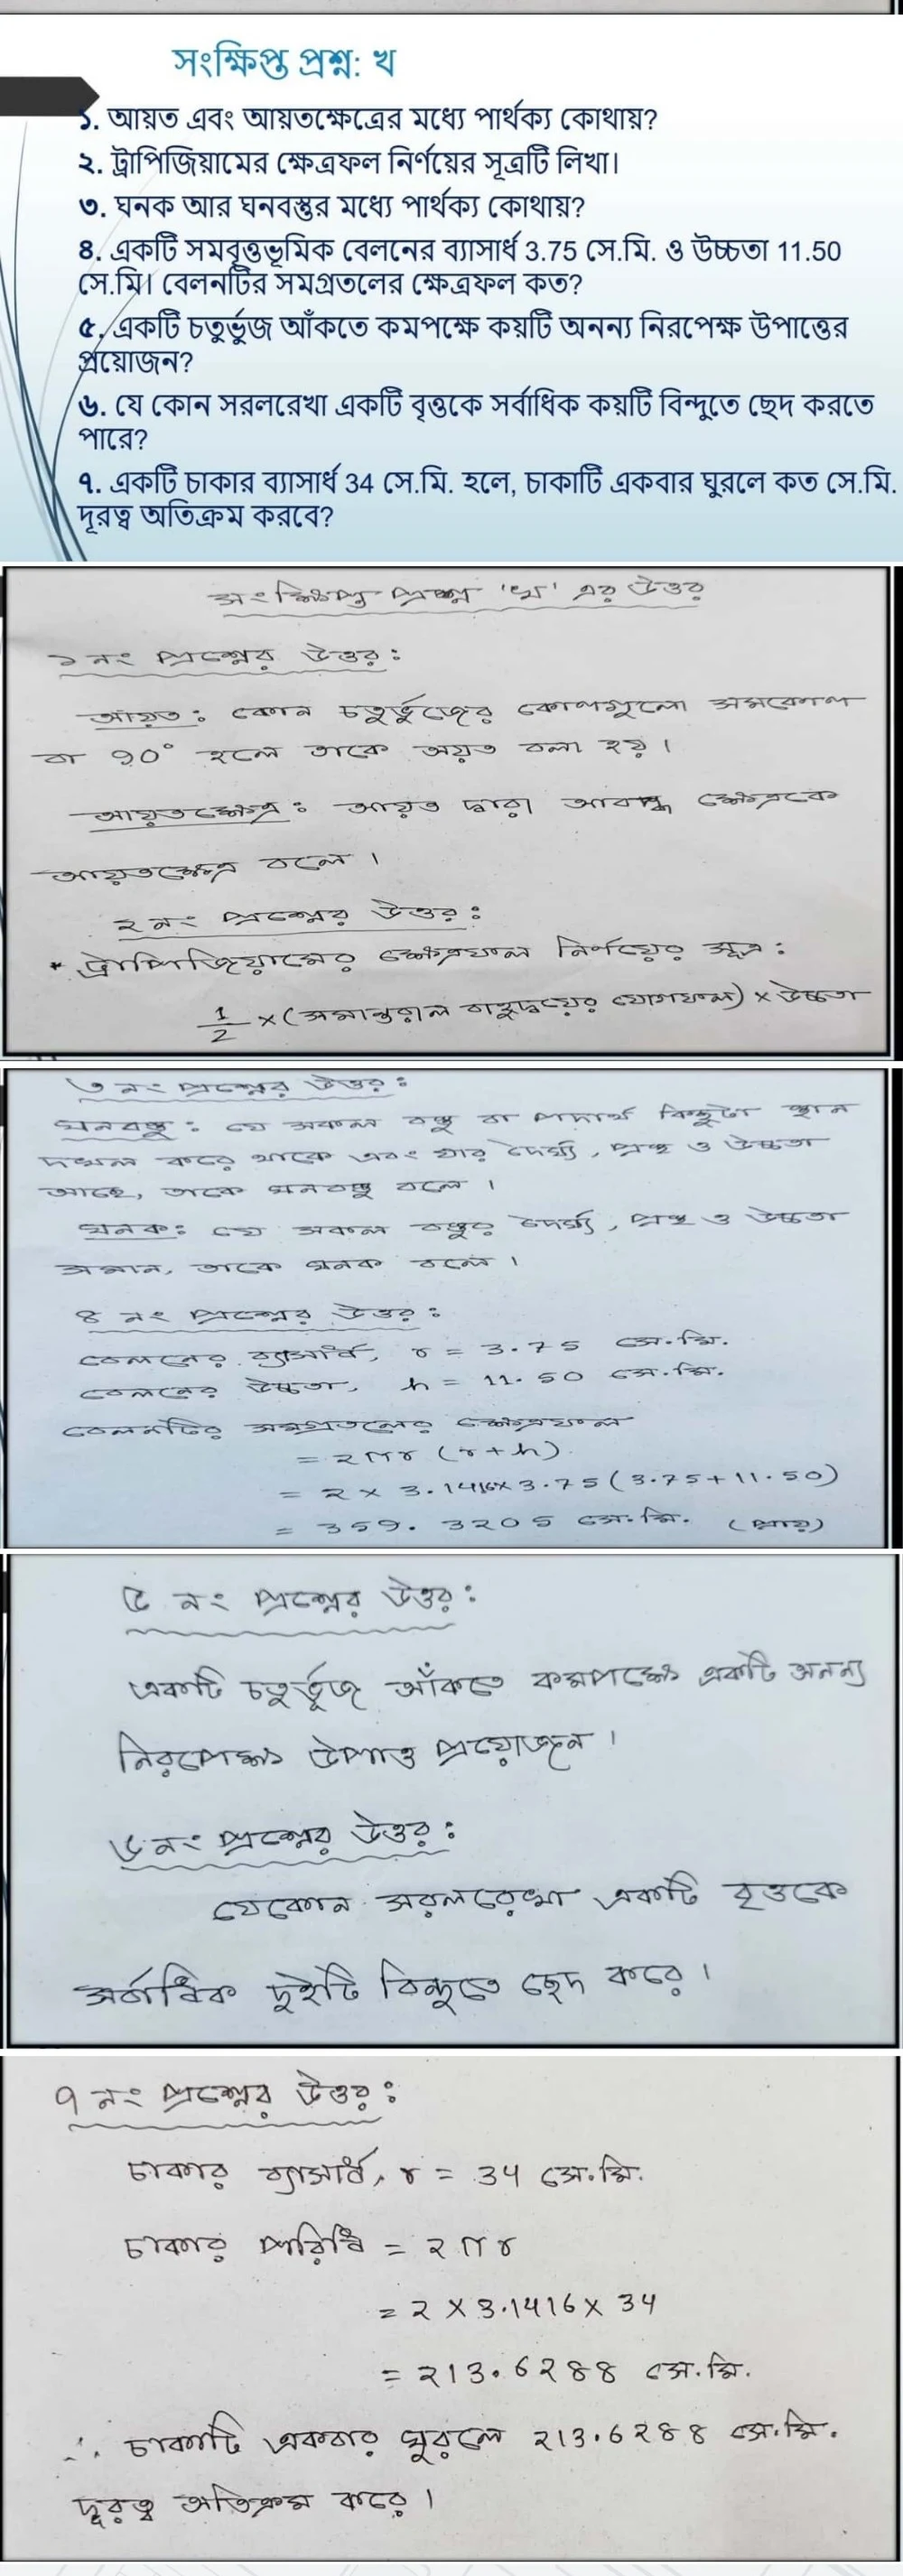 সংক্ষিপ্ত প্রশ্ন: খ
১. আয়ত এবং আয়তক্ষেত্রের মধ্যে পার্থক্য কোথায়?
২. ট্রাপিজিয়ামের ক্ষেত্রফল নির্ণয়ের সূত্রটি লিখা।
৩. ঘনক আর ঘনবস্তুর মধ্যে পার্থক্য কোথায়?
৪. একটি সমবৃত্তভূমিক বেলনের ব্যাসার্ধ 3.75 সে.মি. ও উচ্চতা 11.50
সে.মি। বেলনটির সমগ্রতলের ক্ষেত্রফল কত?
৫. একটি চতুর্ভুজ আঁকতে কমপক্ষে কয়টি অনন্য নিরপেক্ষ উপাত্তের
প্রয়োজন?
৬. যে কোন সরলরেখা একটি বৃত্তকে সর্বাধিক কয়টি বিন্দুতে ছেদ করতে
পারে?
৭. একটি চাকার ব্যাসার্ধ 34 সে.মি. হলে, চাকাটি একবার ঘুরলে কত সে.মি.
দূরত্ব অতিক্রম করবে?
সংক্ষিপ্ত প্রশ্ন 'খ' এর উত্তর
১ নং প্রশ্নের উত্তর:
আয়ত: কোন চতুর্ভুজের কোণগুলো সমকোণ
বা 90° হলে তাকে অয়ত বলা হয়।
আয়তক্ষেত্র: আয়ত দ্বারা আবদ্ধ ক্ষেত্রকে
আয়তক্ষেত্র বলে।
২ নং প্রশ্নের উত্তর:
* ট্রাপিজিয়ামের ক্ষেত্রফল নির্ণয়ের সূত্র:
1/2 × (সমান্তরাল বাহুদ্বয়ের যোগফল) × উচ্চতা
৩ নং প্রশ্নের উত্তর:
ঘনবস্তু: যে সকল বস্তু বা পদার্থ কিছুটা স্থান
দখল করে থাকে এবং যার দৈর্ঘ্য, প্রস্থ ও উচ্চতা
আছে, তাকে ঘনবস্তু বলে।
ঘনক: যে সকল বস্তুর দৈর্ঘ্য, প্রস্থ ও উচ্চতা
সমান, তাকে ঘনক বলে।
৪ নং প্রশ্নের উত্তর:
বেলনের ব্যাসার্ধ, r = 3.75 সে.মি.
বেলনের উচ্চতা, h = 11.50 সে.মি.
বেলনটির সমগ্রতলের ক্ষেত্রফল
= 2πr (r+h)
= 2 × 3.1416× 3.75 (3.75+11.50)
= 359.3205 সে.মি. (প্রায়)
৫ নং প্রশ্নের উত্তর:
একটি চতুর্ভূজ আঁকতে কমপক্ষে একটি অনন্য
নিরপেক্ষ উপাত্ত প্রয়োজন।
৬ নং প্রশ্নের উত্তর:
যেকোন সরলরেখা একটি বৃত্তকে
সর্বাধিক দুইটি বিন্দুতে ছেদ করে।
৭ নং প্রশ্নের উত্তর:
চাকার ব্যাসার্ধ, r = 34 সে.মি.
চাকার পরিধি = 2πr
= 2 × 3.1416 × 34
= 213.6288 সে.মি.
∴ চাকাটি একবার ঘুরলে 213.6288 সে.মি.
দূরত্ব অতিক্রম করে।